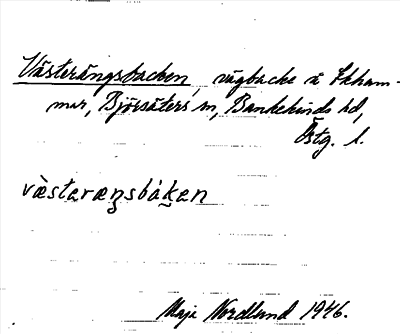 Västerängsbacken, vägbacke å Ekham-
mar, Björsäters sn, Bankekinds hd,
Östg. l.
vèsteræŋsbàken
Maja Nordlund 1946.